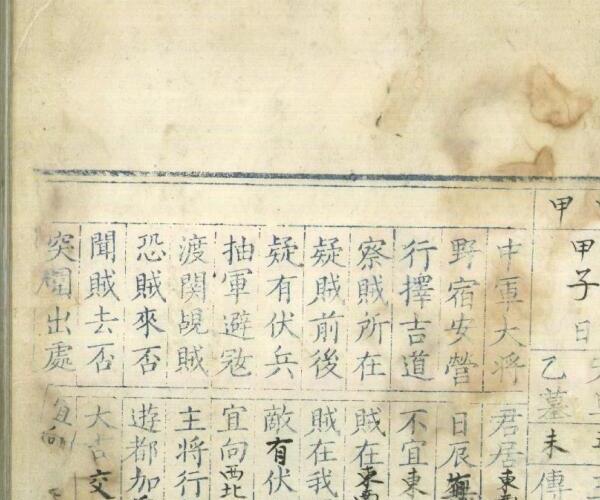 甲
甲子日
乙墓未
傳
中軍大將
君居東
野宿安營
日辰
行擇吉道
不宜東
察賊所在
賊在東南
疑賊前後
賊在我
疑有伏兵
敵有伏
抽軍避冦
宜向西北
渡関覘賊
主將行
恐賊來否
遊都加
聞賊去否
大吉交
突圍出處
宜向